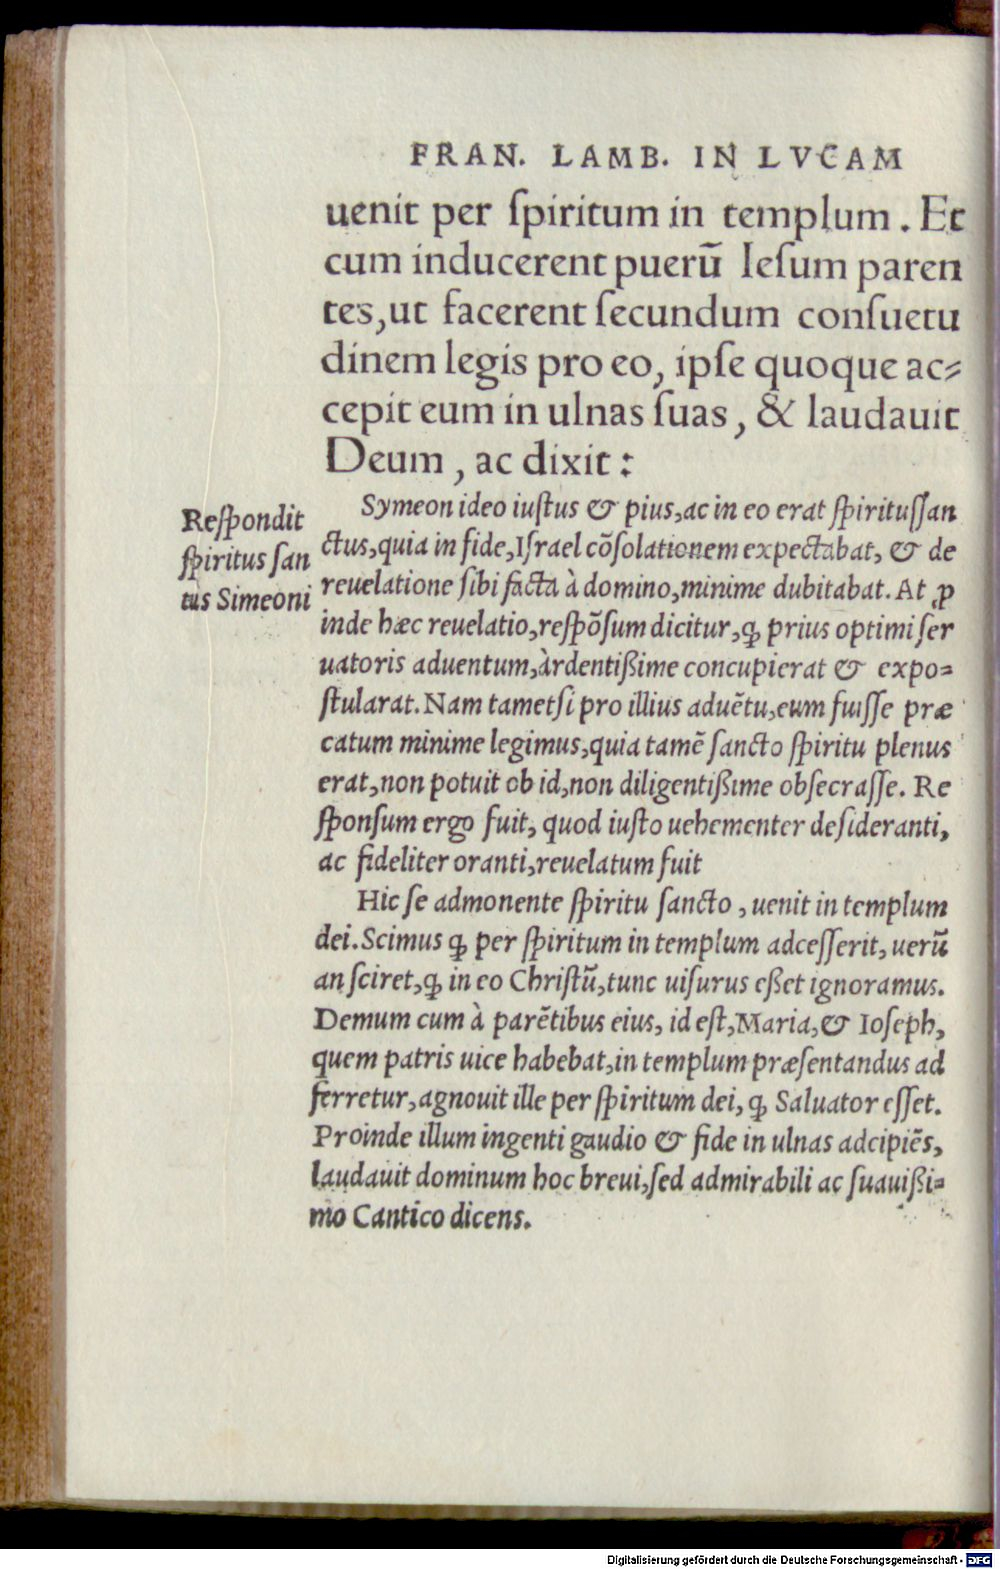 FRAN. LAMB. IN LVCAM
uenit per ſpiritum in templum. Et
cum inducerent puerū Ieſum paren
tes, ut facerent ſecundum conſuetu
dinem legis pro eo, ipſe quoque ac⸗
cepit eum in ulnas ſuas, & laudauit
Deum, ac dixit:
Symeon ideo iuſtus & pius, ac in eo erat ſpiritusſan
ctus, quia in fide, Iſrael cōſolationem expectabat, & de
reuelatione ſibi facta à domino, minime dubitabat. At ꝓ
inde hæc reuelatio, reſpōſum dicitur, ꝙ prius optimi ſer
uatoris aduentum, àrdentißime concupierat & expo⸗
ſtularat. Nam tametſi pro illius aduētu, eum fuiſſe præ
catum minime legimus, quia tamē ſancto ſpiritu plenus
erat, non potuit ob id, non diligentißime obſecraſſe. Re
ſponſum ergo fuit, quod iuſto uehementer deſideranti,
ac fideliter oranti, reuelatum fuit
Reſpondit
ſpiritus ſan
tus Simeoni
Hic ſe admonente ſpiritu ſancto, uenit in templum
dei. Scimus ꝙ per ſpiritum in templum adceſſerit, uerū
an ſciret, ꝙ in eo Chriſtū, tunc uiſurus eßet ignoramus.
Demum cum à parētibus eius, id eſt, Maria, & Ioſeph,
quem patris uice habebat, in templum præſentandus ad
ferretur, agnouit ille per ſpiritum dei, ꝙ Saluator eſſet.
Proinde illum ingenti gaudio & fide in ulnas adcipiēs,
laudauit dominum hoc breui, ſed admirabili ac ſuauißi⸗
mo Cantico dicens.
Digitalisierung gefördert durch die Deutsche Forschungsgemeinschaft - DFG